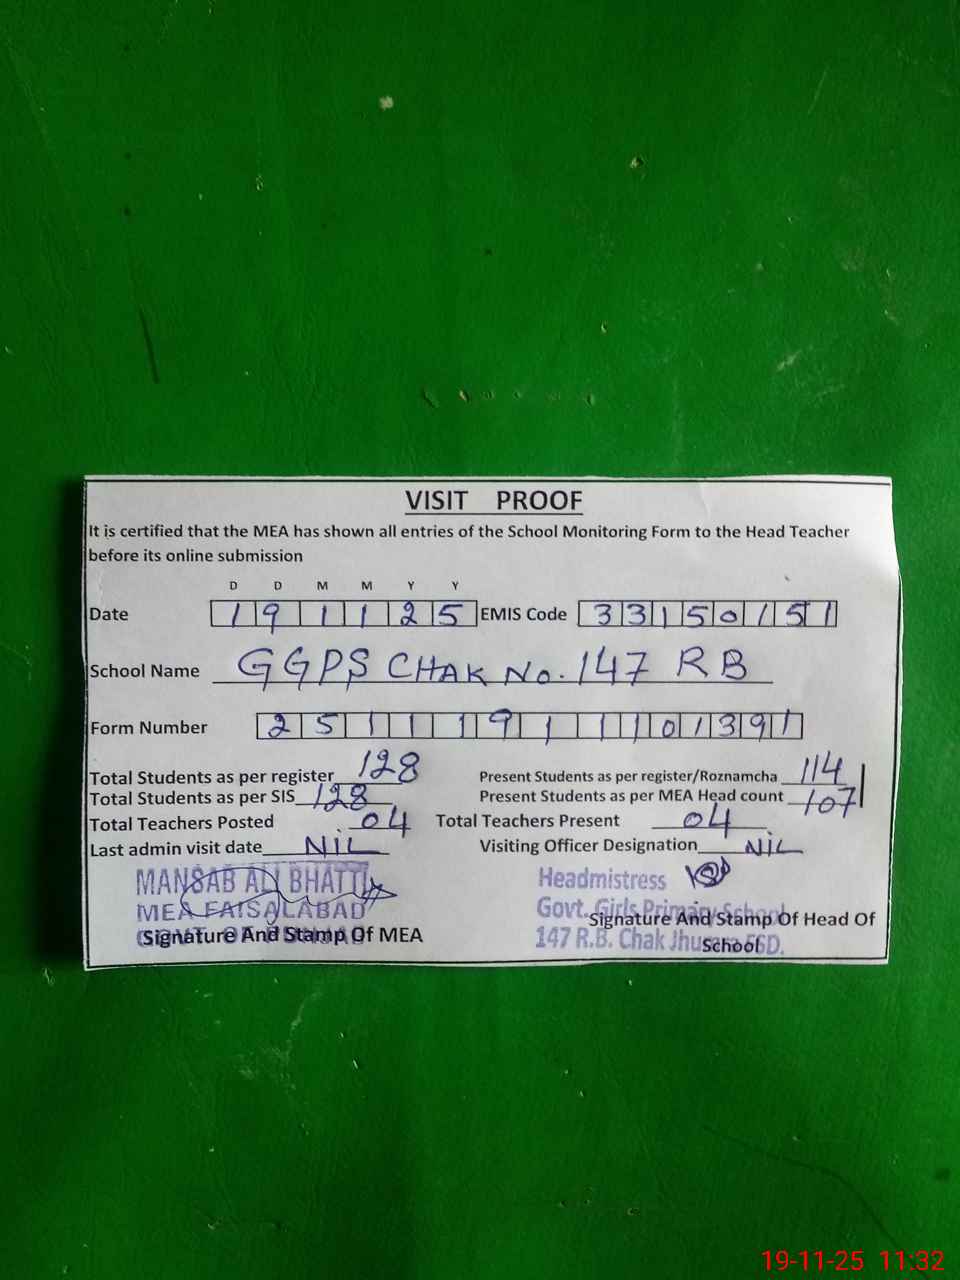 VISIT PROOF
It is certified that the MEA has shown all entries of the School Monitoring Form to the Head Teacher
before its online submission
D D M M Y Y
Date 1 9 1 1 2 5 EMIS Code 3 3 1 5 0 1 5 1
School Name GGPS CHAK No. 147 RB
Form Number 2 5 1 1 1 9 1 1 1 0 1 3 9 1
Total Students as per register 128 Present Students as per register/Roznamcha 114
Total Students as per SIS 128 Present Students as per MEA Head count 107
Total Teachers Posted 04 Total Teachers Present 04
Last admin visit date NIL Visiting Officer Designation NIL
MANSAB ALI BHATTI Headmistress
MEA FAISALABAD Govt. Girls Primary School
Signature And Stamp Of MEA Signature And Stamp Of Head Of
School
147 R.B. Chak FSD.
19-11-25 11:32